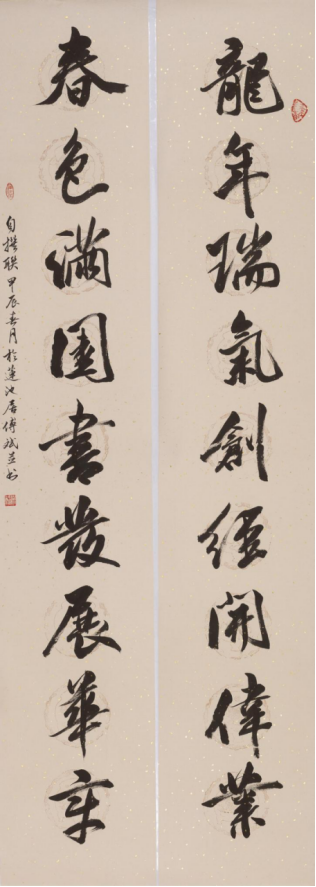 龍年瑞氣創經開偉業
春色滿園書發展華章
自撰联甲辰春月於蓮池居傅斌並书